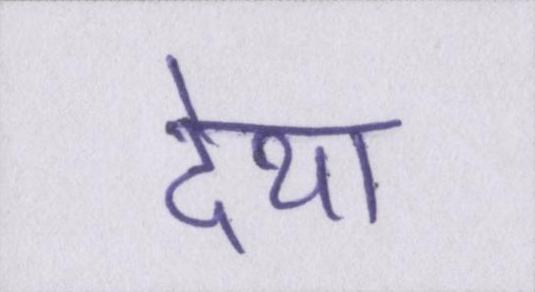 देथा